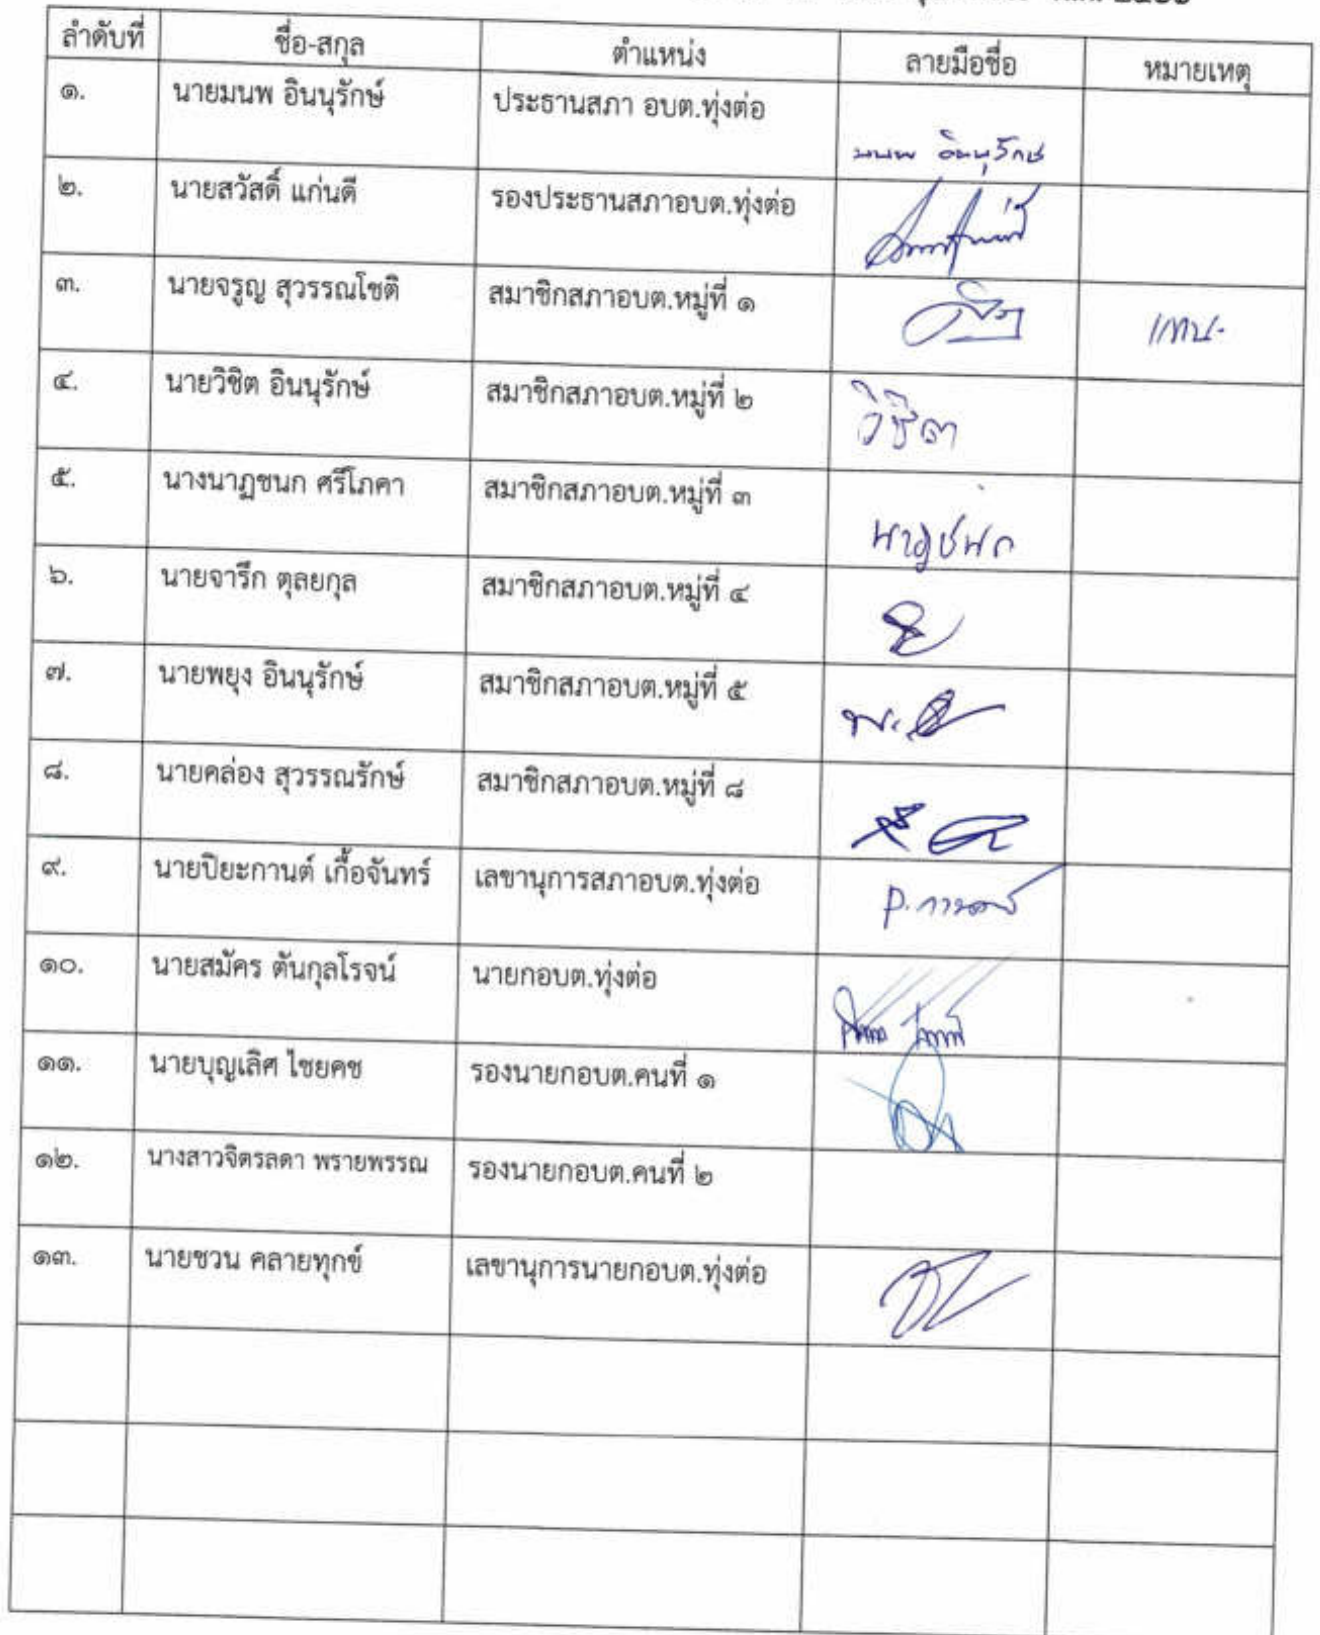 ลำดับที่ ชื่อ-สกุล ตำแหน่ง ลายมือชื่อ หมายเหตุ
๑. นายมนพ อินนุรักษ์ ประธานสภา อบต.ทุ่งต่อ มนพ อินนุรักษ์
๒. นายสวัสดิ์ แก่นดี รองประธานสภาอบต.ทุ่งต่อ
๓. นายจรูญ สุวรรณโชติ สมาชิกสภาอบต.หมู่ที่ ๑
๔. นายวิชิต อินนุรักษ์ สมาชิกสภาอบต.หมู่ที่ ๒ วิชิต
๕. นางนาฏชนก ศรีโภคา สมาชิกสภาอบต.หมู่ที่ ๓ นาฏชนก
๖. นายจารึก ตุลยกุล สมาชิกสภาอบต.หมู่ที่ ๔
๗. นายพยุง อินนุรักษ์ สมาชิกสภาอบต.หมู่ที่ ๕
๘. นายคล่อง สุวรรณรักษ์ สมาชิกสภาอบต.หมู่ที่ ๘
๙. นายปิยะกานต์ เกื้อจันทร์ เลขานุการสภาอบต.ทุ่งต่อ
๑๐. นายสมัคร ตันกุลโรจน์ นายกอบต.ทุ่งต่อ
๑๑. นายบุญเลิศ ไชยคช รองนายกอบต.คนที่ ๑
๑๒. นางสาวจิตรลดา พรายพรรณ รองนายกอบต.คนที่ ๒
๑๓. นายชวน คลายทุกข์ เลขานุการนายกอบต.ทุ่งต่อ